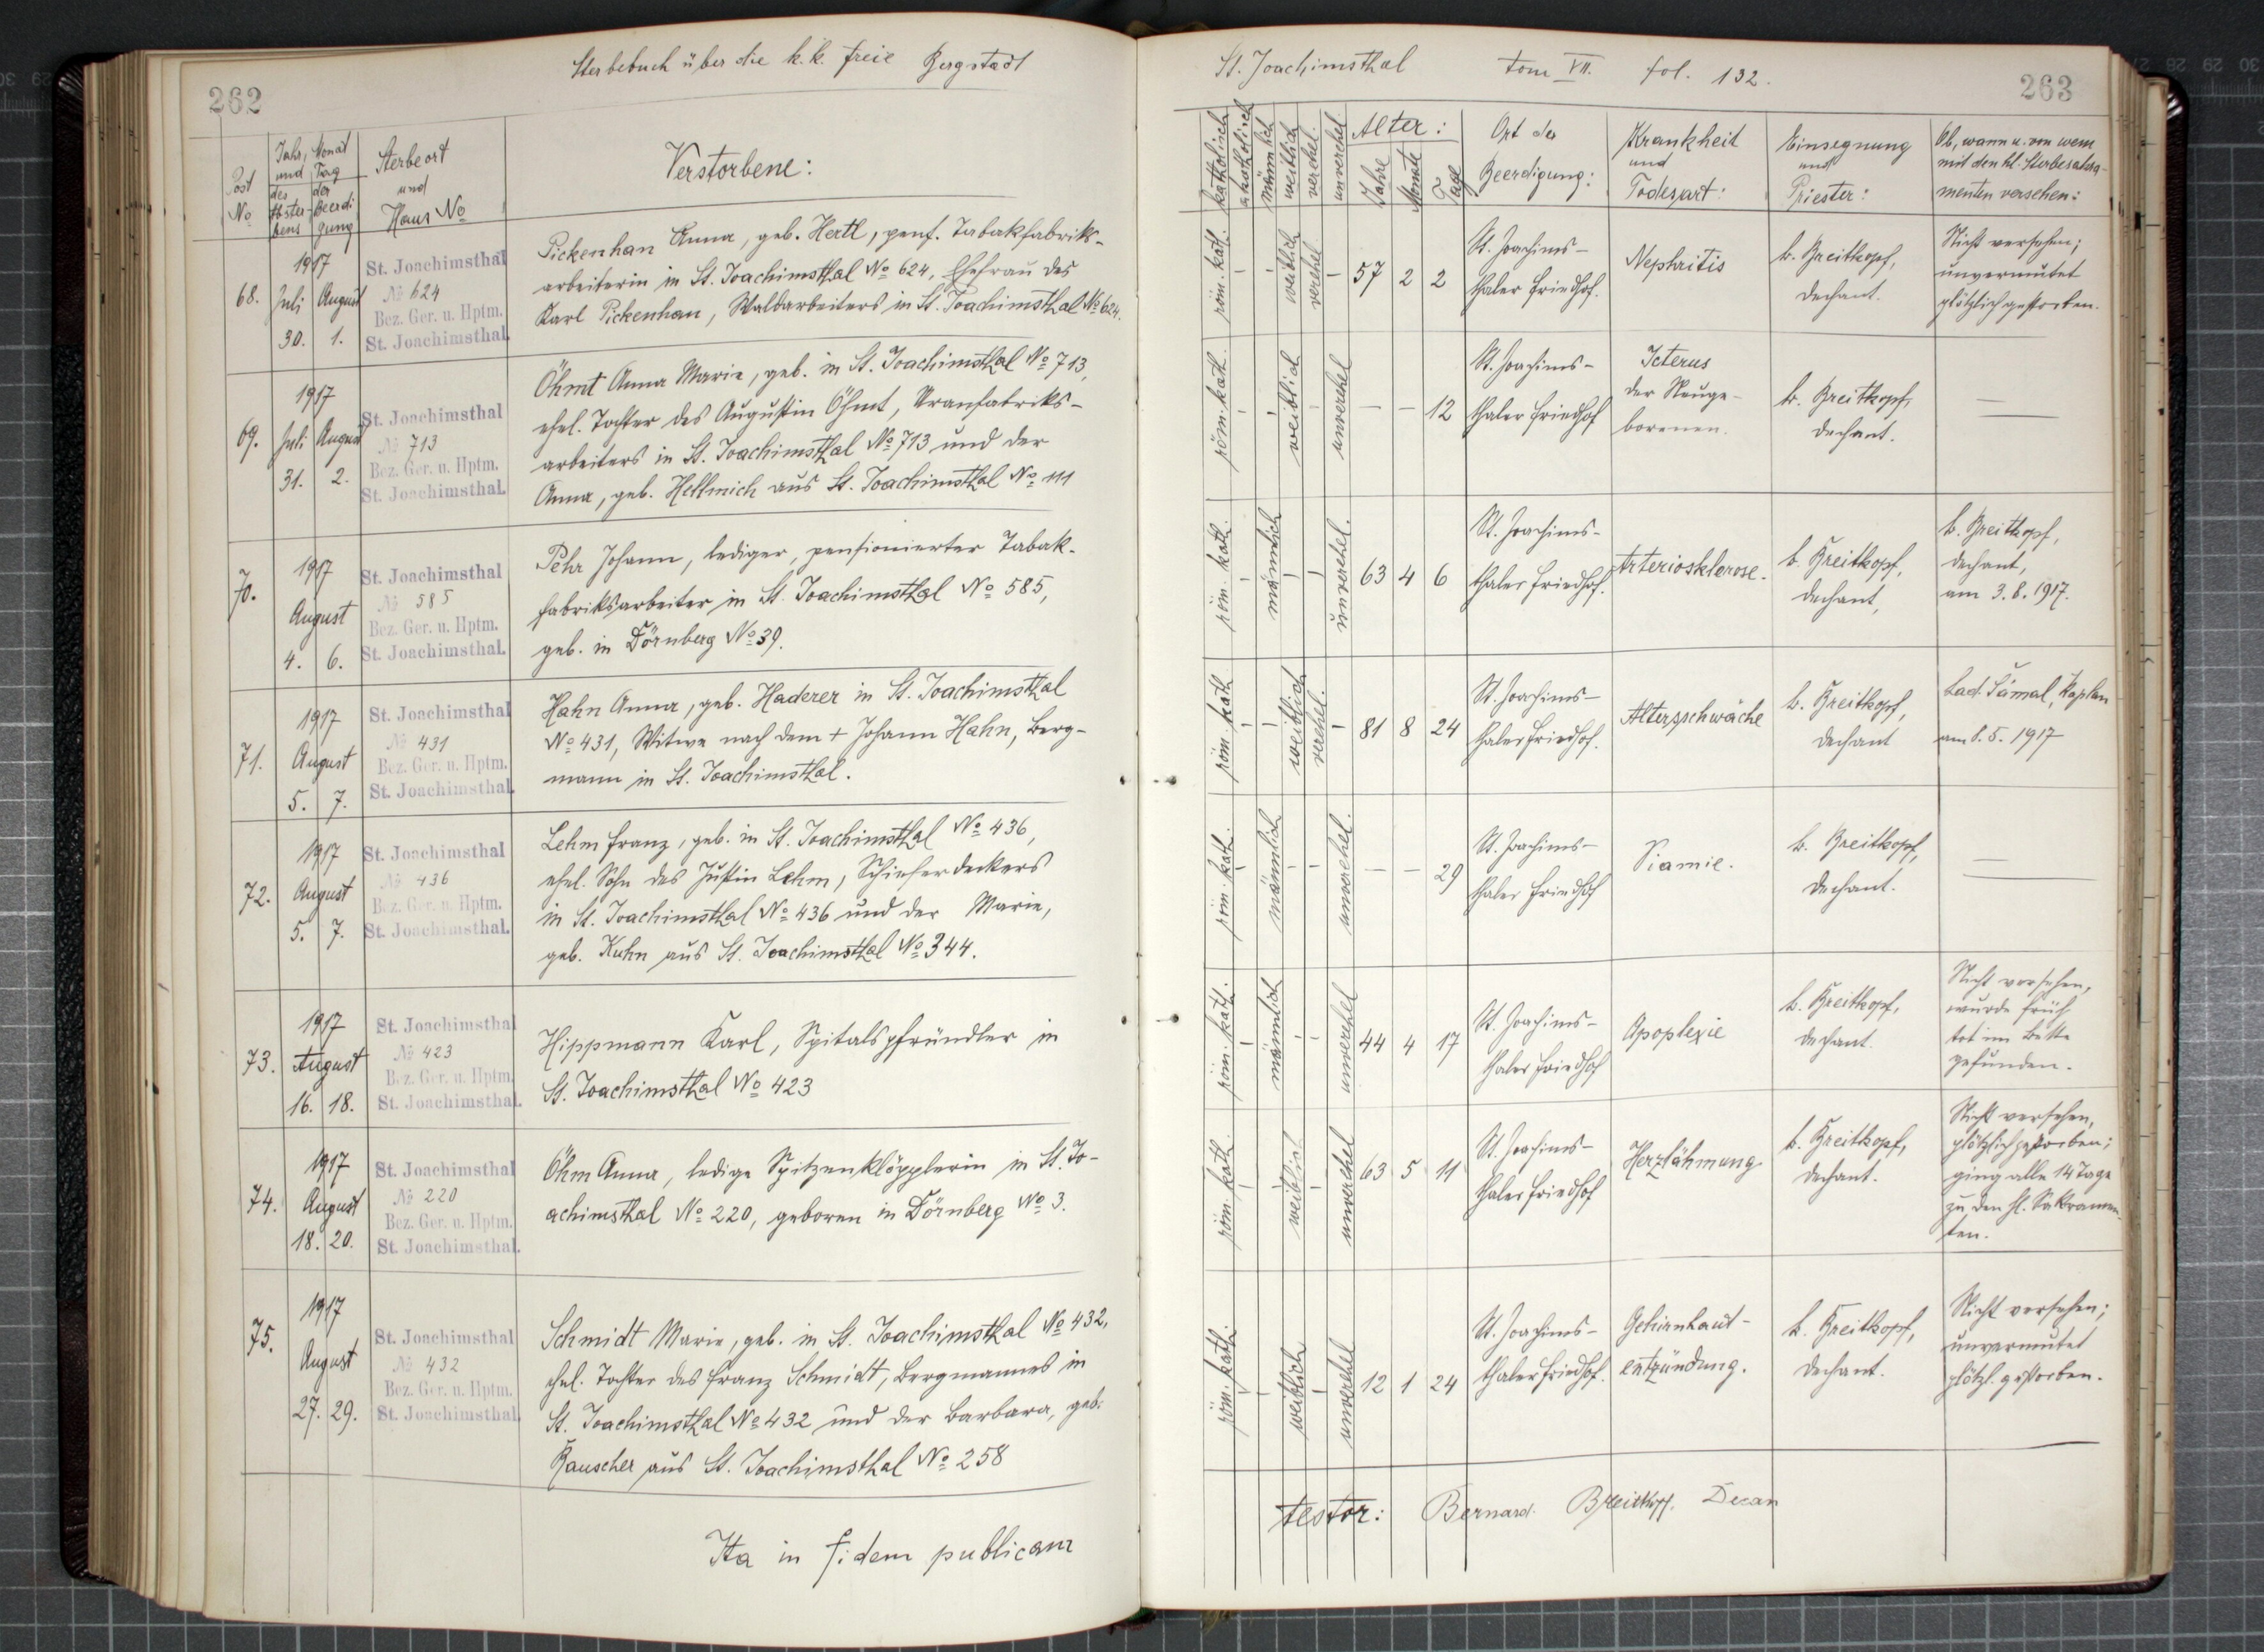 Sterbebuch über die k.k. freie Bergstadt
262
Post No
Jahr, Monat und Tag
des Absterbens
der Beerdigung
Sterbeort und Haus No
Verstorbene:
68.
1917
Juli August
30. 1.
St. Joachimsthal
No 624
Bez. Ger. u. Hptm.
St. Joachimsthal.
Pickenhan Anna, geb. Hertl, pens. Tabakfabriks-
arbeiterin in St. Joachimsthal No 624, Ehefrau des
Karl Pickenhan, Waldarbeiters in St. Joachimsthal No 624.
69.
1917
Juli August
31. 2.
St. Joachimsthal
No 713
Bez. Ger. u. Hptm.
St. Joachimsthal.
Öhmt Anna Marie, geb. in St. Joachimsthal No 713,
ehel. Tochter des Augustin Öhmt, Uranfabriks-
arbeiters in St. Joachimsthal No 713 und der
Anna, geb. Hellmich aus St. Joachimsthal No 111
70.
1917
August
4. 6.
St. Joachimsthal
No 585
Bez. Ger. u. Hptm.
St. Joachimsthal.
Pehr Johann, lediger, pensionierter Tabak-
fabriksarbeiter in St. Joachimsthal No 585,
geb. in Dörnberg No 39.
71.
1917
August
5. 7.
St. Joachimsthal
No 431
Bez. Ger. u. Hptm.
St. Joachimsthal.
Hahn Anna, geb. Haderer in St. Joachimsthal
No 431, Witwe nach dem + Johann Hahn, Berg-
mann in St. Joachimsthal.
72.
1917
August
5. 7.
St. Joachimsthal
No 436
Bez. Ger. u. Hptm.
St. Joachimsthal.
Lehm Franz, geb. in St. Joachimsthal No 436,
ehel. Sohn des Justin Lehm, Schieferdeckers
in St. Joachimsthal No 436 und der Marie,
geb. Kuhn aus St. Joachimsthal No 344.
73.
1917
August
16. 18.
St. Joachimsthal
No 423
Bez. Ger. u. Hptm.
St. Joachimsthal.
Hippmann Karl, Spitalspfründler in
St. Joachimsthal No 423
74.
1917
August
18. 20.
St. Joachimsthal
No 220
Bez. Ger. u. Hptm.
St. Joachimsthal.
Öhm Anna, ledige Spitzenklöpplerin in St. Jo-
achimsthal No 220, geboren in Dörnberg No 3.
75.
1917
August
27. 29.
St. Joachimsthal
No 432
Bez. Ger. u. Hptm.
St. Joachimsthal.
Schmidt Marie, geb. in St. Joachimsthal No 432,
ehel. Tochter des Franz Schmidt, Bergmannes in
St. Joachimsthal No 432 und der Barbara, geb.
Rauscher aus St. Joachimsthal No 258
Ita in fidem publicam
St. Joachimsthal tom VII. fol. 132.
263
katholisch
akatholisch
männlich
weiblich
verehel.
unverehel
Alter:
Jahre
Monate
Tage
Ort der
Beerdigung:
Krankheit
und
Todesart:
Einsegnung
und
Priester:
Ob, wann u. von wem
mit den hl. Sterbesakra-
menten versehen:
röm. kat. - - weiblich verehel -
57 2 2
St. Joachims-
thaler Friedhof.
Nephritis
b. Breitkopf,
Dechant.
Nicht versehen;
unvermutet
plötzlich gestorben.
röm. kat. - - weiblich - unverehel
— — 12
St. Joachims-
thaler Friedhof
Icterus
der Neuge-
borenen.
b. Breitkopf,
Dechant.
—
röm. kath. - männlich - - unverehel.
63 4 6
St. Joachims-
thaler Friedhof.
Arteriosklerose.
b. Breitkopf,
Dechant,
b. Breitkopf,
Dechant,
am 3.8.1917.
röm. kath - - weiblich verehel. -
81 8 24
St. Joachims-
thaler Friedhof.
Altersschwäche
b. Breitkopf,
Dechant
Lad. Šámal, Kaplan
am 8.5.1917
röm. kat. - männlich - - unverehel.
— — 29
St. Joachims-
thaler Friedhof
Piämie.
b. Breitkopf,
Dechant.
—
röm. kath. - männlich - - unverehel
44 4 17
St. Joachims-
thaler Friedhof
Apoplexie
b. Breitkopf,
Dechant.
Nicht versehen,
wurde früh
tot im Bette
gefunden.
röm. kath. - - weiblich - unverehel
63 5 11
St. Joachims-
thaler Friedhof
Herzlähmung
b. Breitkopf,
Dechant.
Nicht versehen,
plötzlich gestorben;
ging alle 14 Tage
zu den hl. Sakramen-
ten.
röm. kath. - - weiblich - unverehel
12 1 24
St. Joachims-
thaler Friedhof.
Gehirnhaut-
entzündung.
b. Breitkopf,
Dechant.
Nicht versehen;
unvermutet
plötzl. gestorben.
testor: Bernard. Breitkopf. Decan